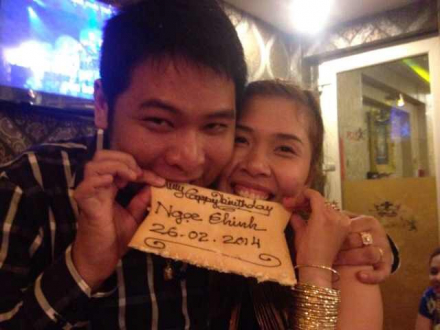 Happy birthday
Ngọc Chinh
26.02.2014